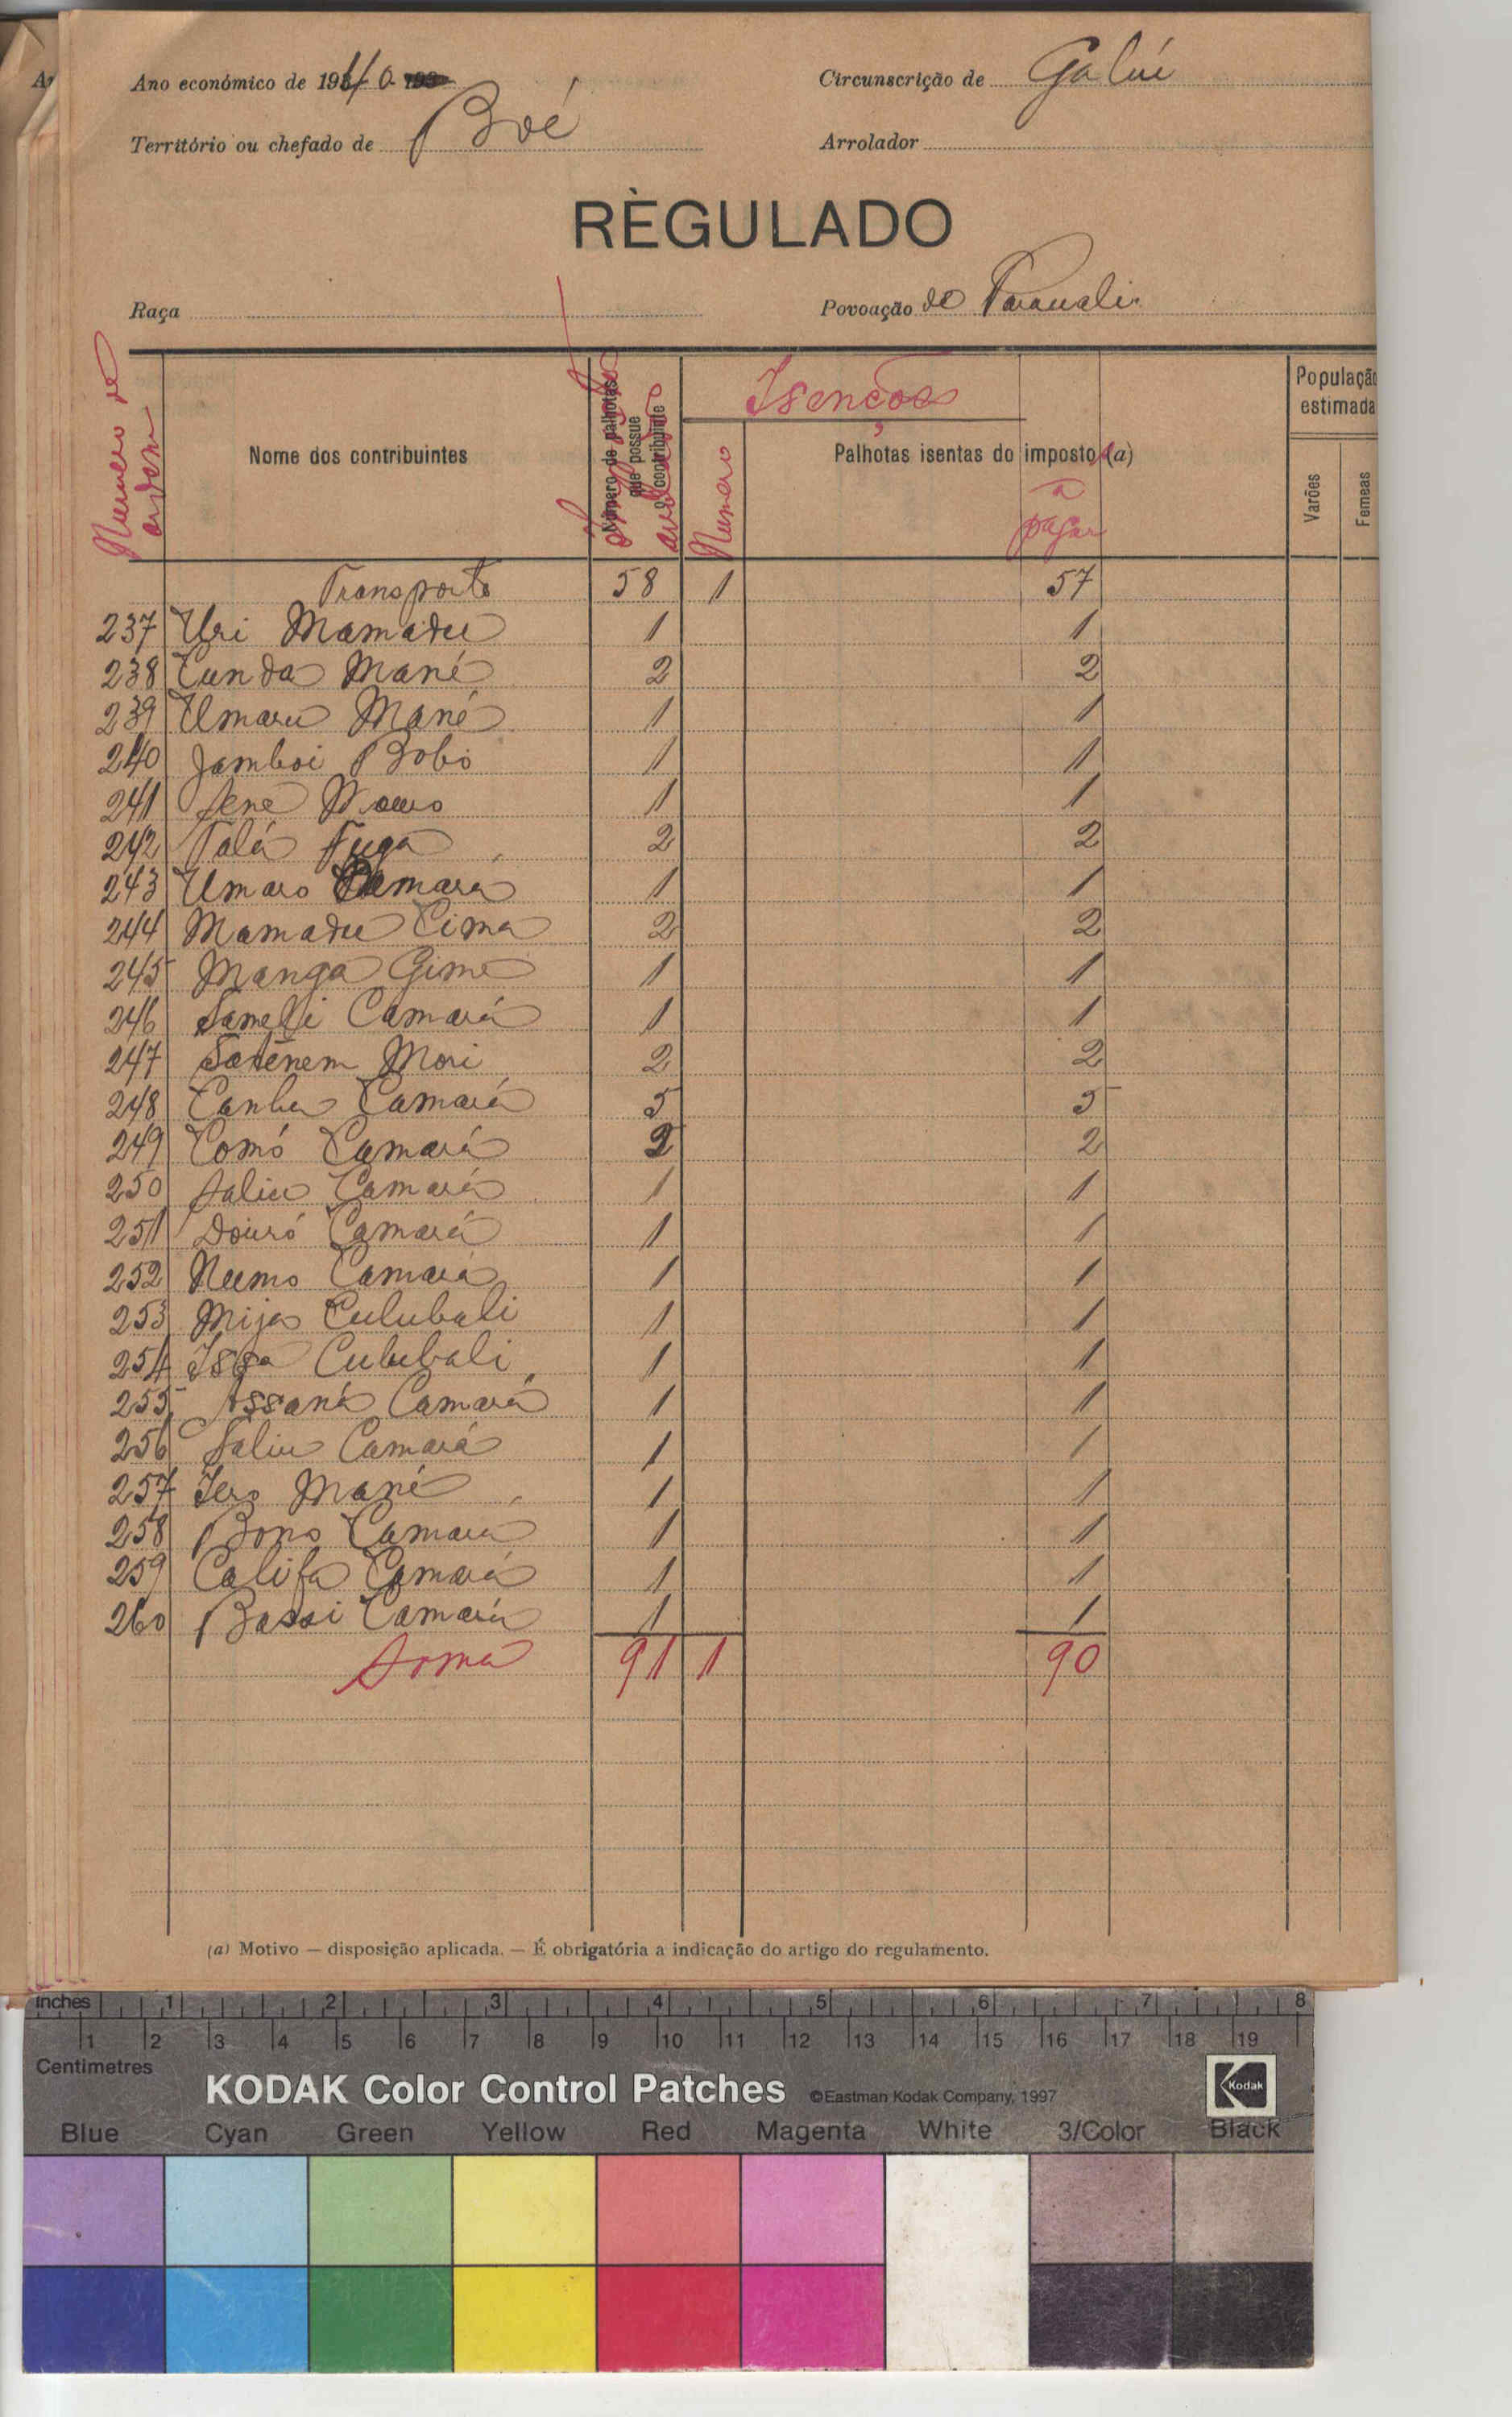 Ano económico de 1940
Circunscrição de Gabú
Território ou chefado de Boé
Arrolador
RÈGULADO
Raça
Povoação de
Numero de ordem
Nome dos contribuintes
Número de palhotas que possue o contribuinte
Isenções
Numero
Palhotas isentas do imposto (a)
a pagar
População estimada
Varões
Femeas
Transporte 58 1 57
237 Uri Mamadu 1 1
238 Cunda Mané 2 2
239 Umaru Mané 1 1
240 Jamboi Bobo 1 1
241 Sene 1 1
242 Talá Fuga 2 2
243 Umaro Camará 1 1
244 Mamadu Cima 2 2
245 Manga Gime 1 1
246 Camará 1 1
247 Mori 2 2
248 Canha Camará 5 5
249 Comó Camará 2 2
250 Saliu Camará 1 1
251 Douró Camará 1 1
252 Numo Camará 1 1
253 Mija Culubali 1 1
254 Issa Culubali 1 1
255 Assaná Camará 1 1
256 Saliu Camará 1 1
257 Iero Mané 1 1
258 Bono Camará 1 1
259 Califa Camará 1 1
260 Bassi Camará 1 1
Soma 91 1 90
(a) Motivo — disposição aplicada. — É obrigatória a indicação do artigo do regulamento.
inches 1 2 3 4 5 6 7 8
1 2 3 4 5 6 7 8 9 10 11 12 13 14 15 16 17 18 19
Centimetres
KODAK Color Control Patches ©Eastman Kodak Company, 1997 Kodak
Blue Cyan Green Yellow Red Magenta White 3/Color Black